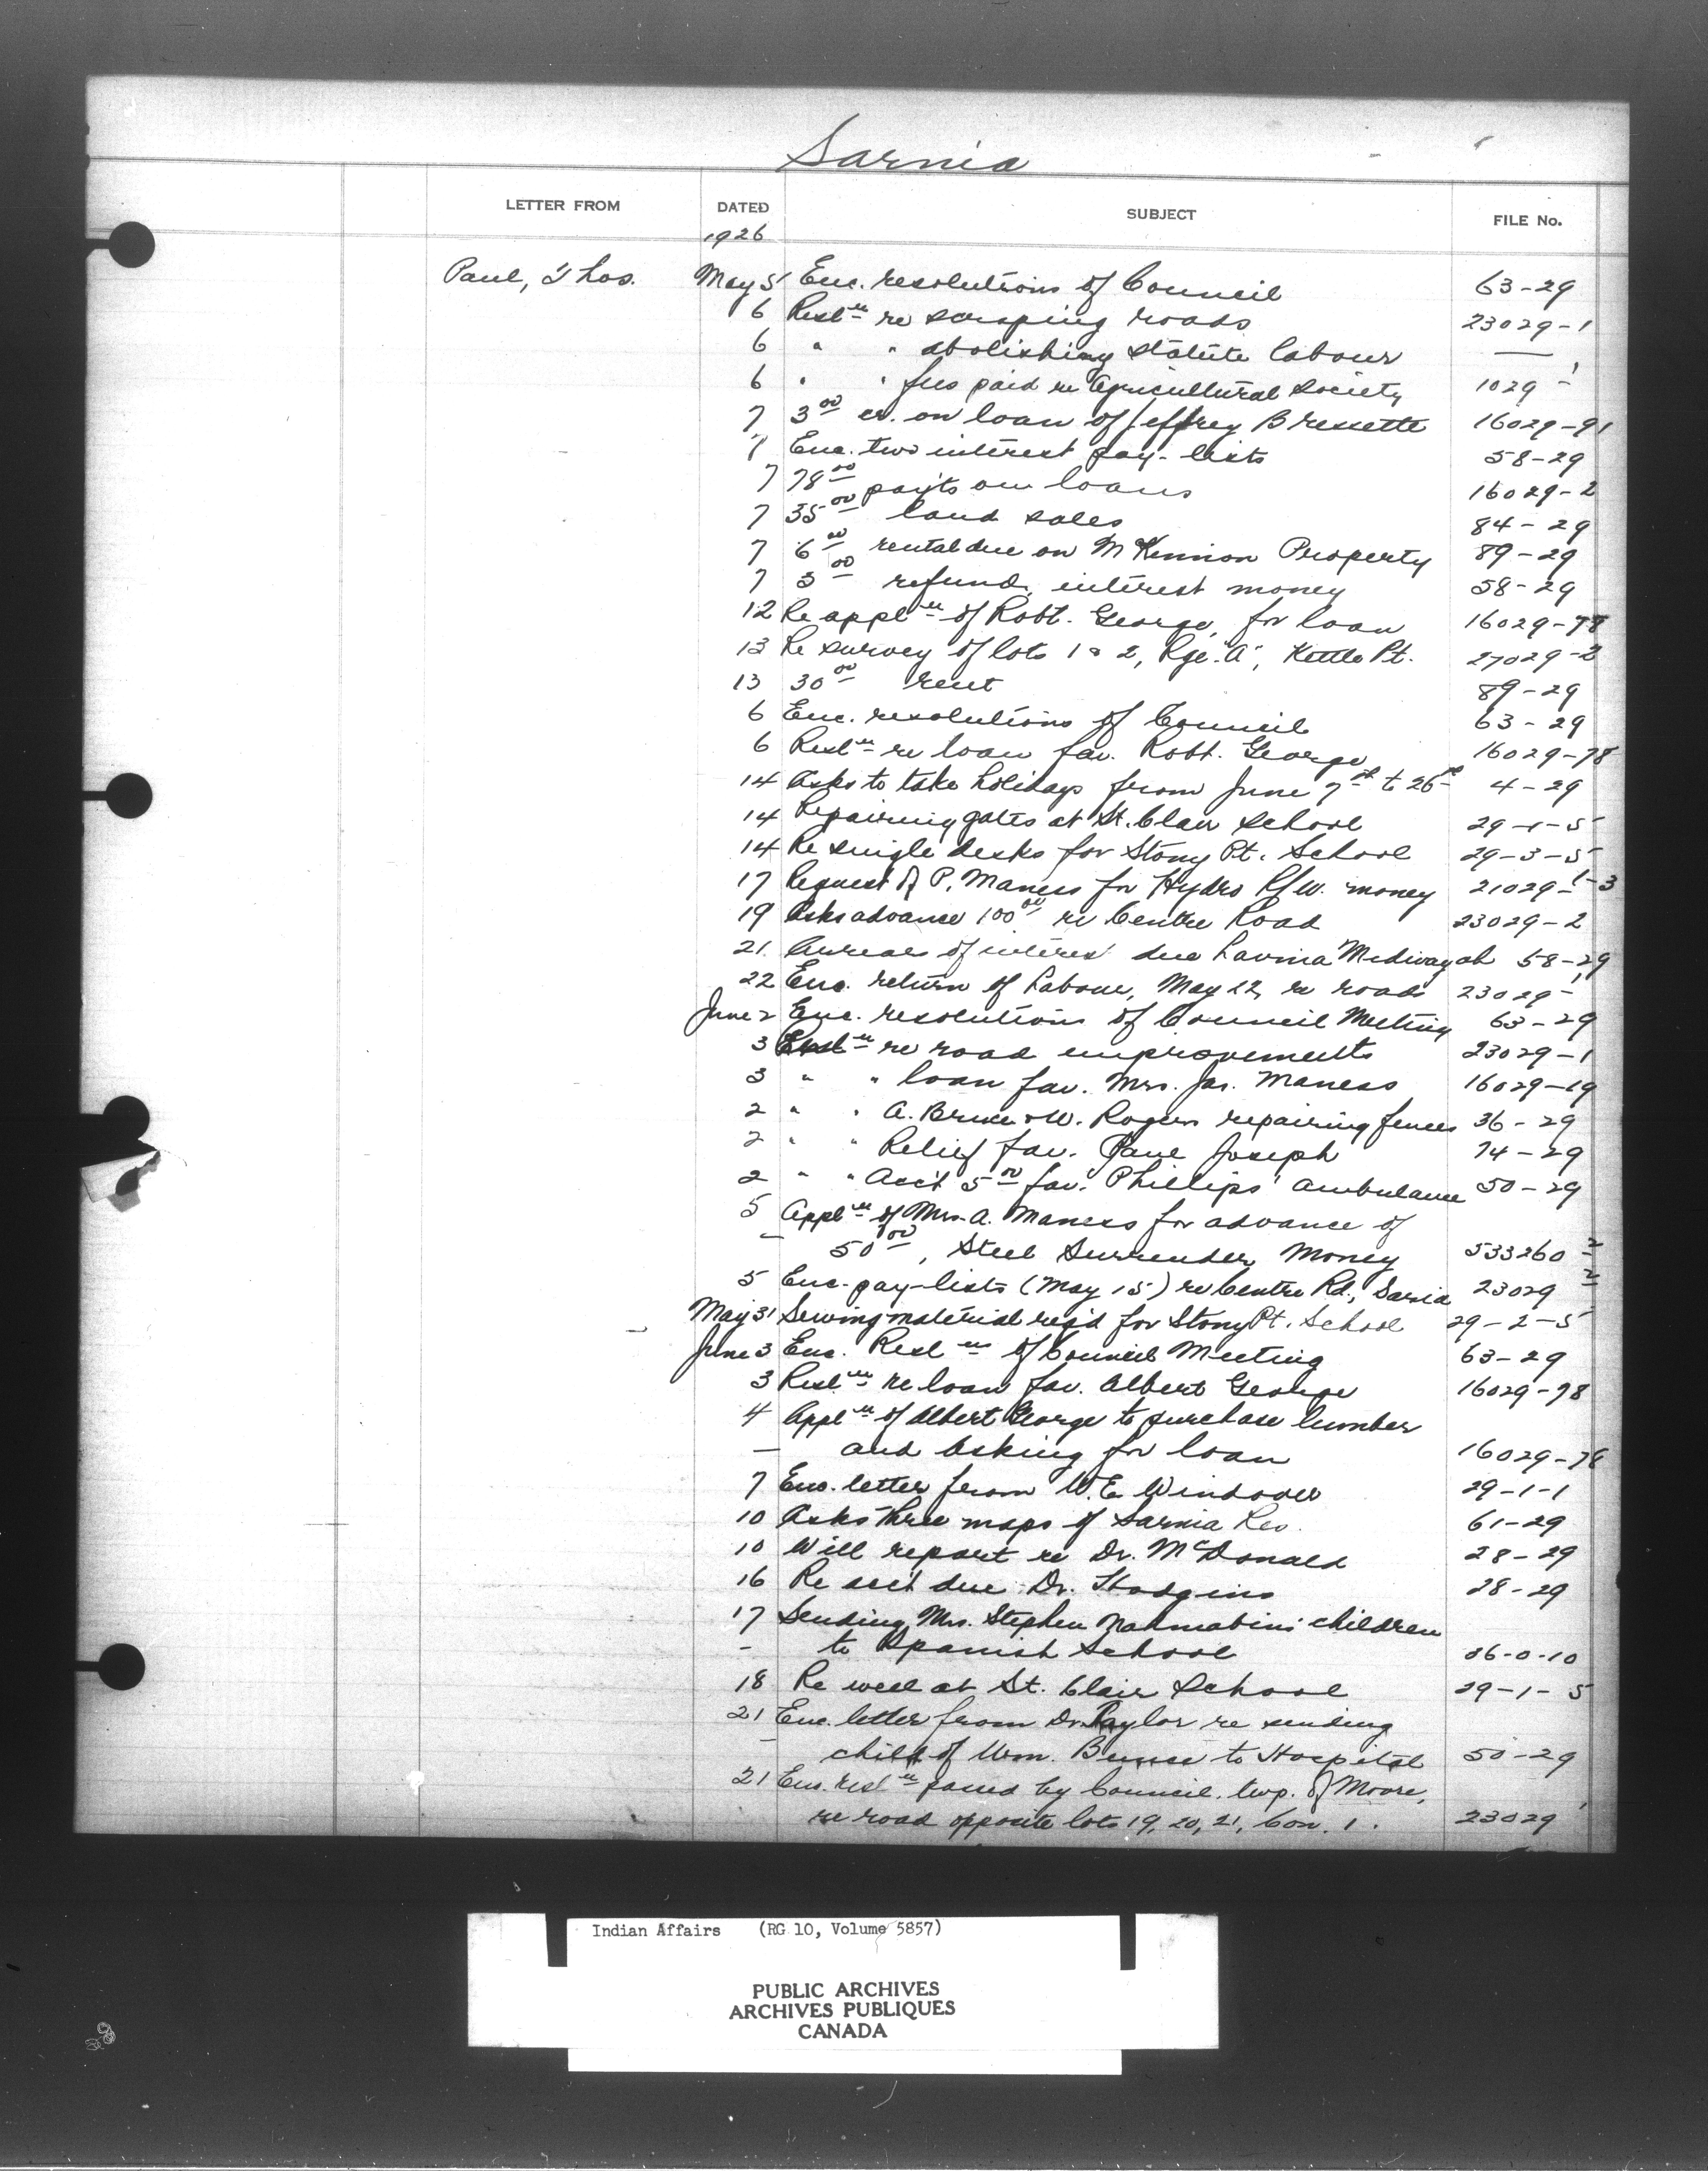 Sarnia
LETTER FROM DATED SUBJECT FILE No.
1926
Paul, Thos. May 5 Enc. resolutions of Council 63-29
6 Resl'n re scraping roads 23029-1
6 " " abolishing statute labour — 1
6 " " fees paid re Agricultural Society 1029 -
7 3.00 cr. on loan of Jeffrey Bressette 16029-91
7 Enc. two interest pay-lists 58-29
7 78.00 pay'ts on loans 16029-2
7 35.00 land sales 84-29
7 6.00 rental due on McKinnon Property 89-29
7 3.00 refund, interest money 58-29
12 Re appl'n of Robt. George, for loan 16029-78
13 Re survey of lots 1 & 2, Rge. "A", Kettle Pt. 27029-2
13 30.00 rent 89-29
6 Enc. resolutions of Council 63-29
6 Resl'n re loan fav. Robt. George 16029-78
14 Asks to take holidays from June 7th to 26th 4-29
14 Repairing gates at St. Clair School 29-1-5
14 Re single desks for Stony Pt. School 29-3-5
17 Request of P. Maness for Hydro R/W. money 21029-1-3
19 Asks advance 100.00 re Centre Road 23029-2
21. Arrears of interest due Lavina Medwayosh 58-29
22 Enc. return of Labour, May 22, re roads 23029-1
June 2 Enc. resolutions of Council Meeting 63-29
3 Resl'n re road improvements 23029-1
3 " " loan fav. Mrs. Jas. Maness 16029-19
2 " " A. Bruce & W. Rogers repairing fences 36-29
2 " " Relief fav. Jane Joseph 74-29
2 " " Acc't 5.00 fav. Phillips' ambulance 50-29
5 Appl'n of Mrs. A. Maness for advance of
— 50.00, Steel Surrender Money 533260-2
5 Enc. pay-lists (May 15) re Centre Rd., Sarnia 23029-2
May 31 Sewing material req'd for Stony Pt. School 29-2-5
June 3 Enc. Resl'ns of Council Meeting 63-29
3 Resl'n re loan fav. Albert George 16029-78
4 Appl'n of Albert George to purchase lumber
— and asking for loan 16029-78
7 Enc. letter from W.E. Windover 29-1-1
10 Asks three maps of Sarnia Res. 61-29
10 Will report re Dr. McDonald 28-29
16 Re acc't due Dr. Hodgins 28-29
17 Sending Mrs. Stephen Nahmabin's children
- to Spanish School 36-0-10
18 Re well at St. Clair School 29-1-5
21 Enc. letter from Dr. Taylor re sending
— child of Wm. to Hospital 50-29
21 Enc. resl'n passed by Council, twp. of Moore,
re road opposite lots 19, 20, 21, Con. 1. 23029 1
Indian Affairs (RG 10, Volume 5857)
PUBLIC ARCHIVES
ARCHIVES PUBLIQUES
CANADA